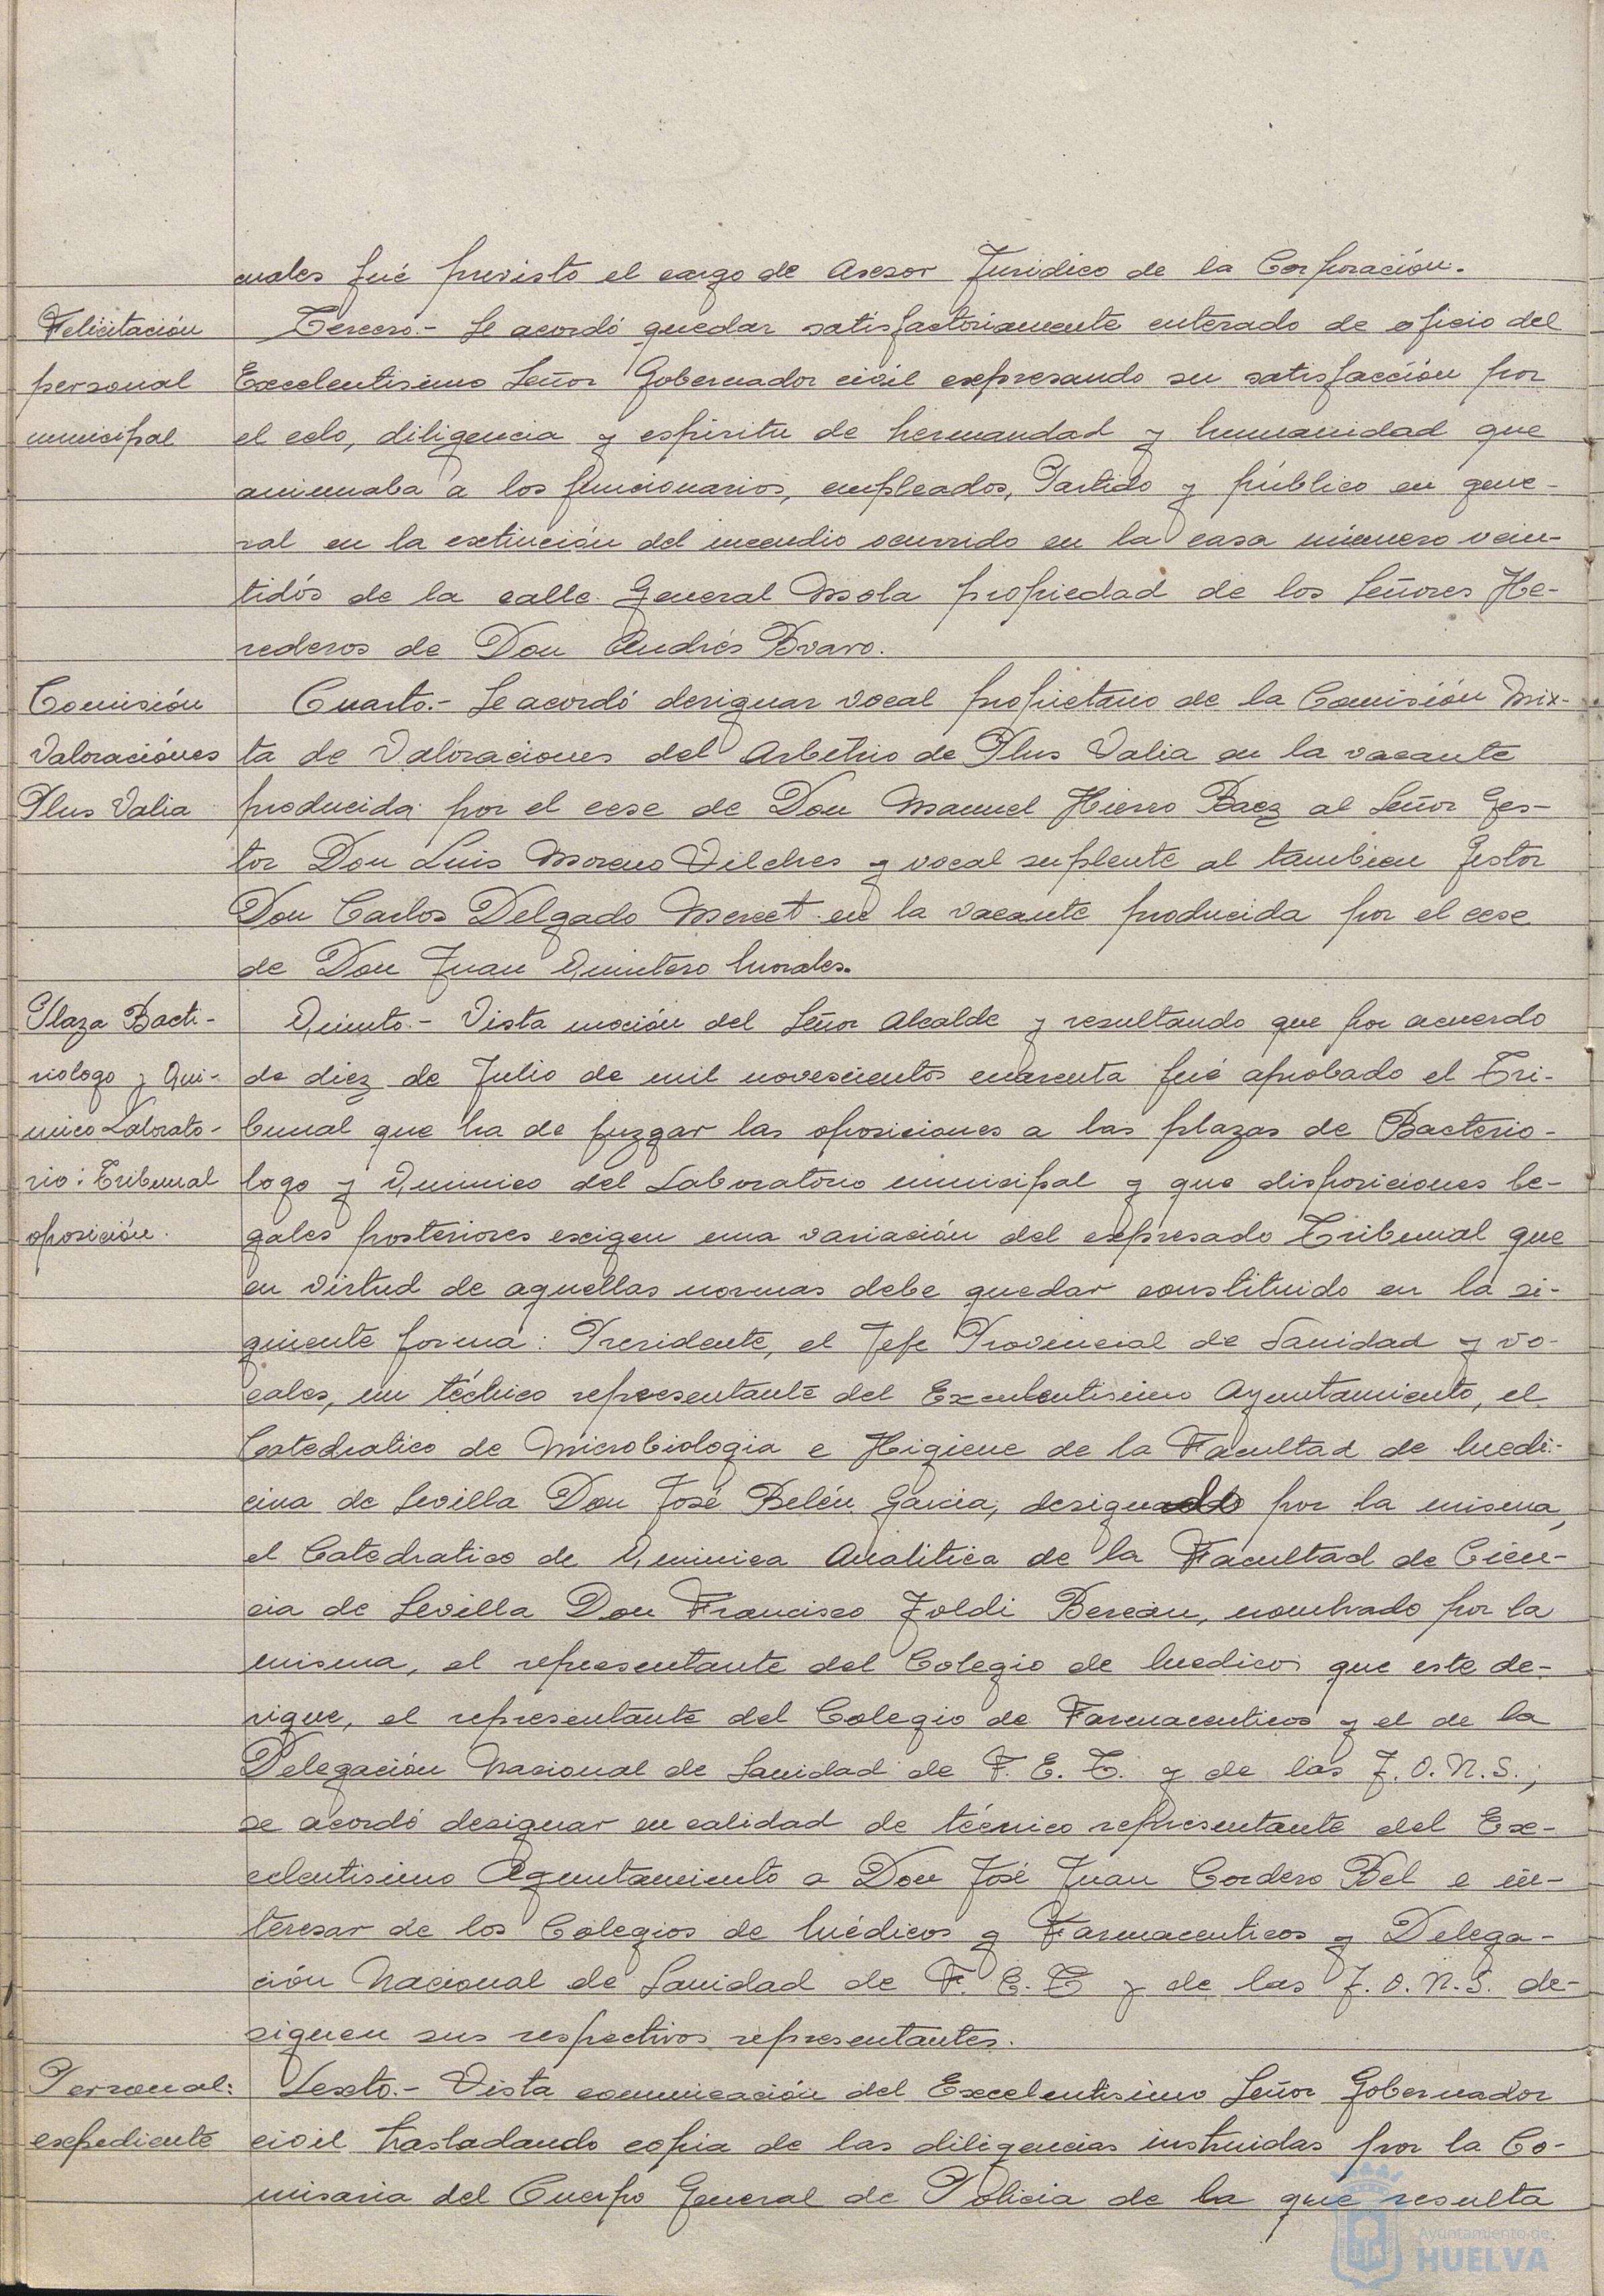 cuales fué previsto el cargo de Asesor Juridico de la Corporación.
Felicitación
personal
municipal
Tercero.- Se acordó quedar satisfactoriamente enterado de oficio del
Excelentisimo Señor Gobernador civil expresando su satisfacción por
el celo, diligencia y espiritu de hermandad y humanidad que
animaba a los funcionarios, empleados, Partido y público en gene-
ral en la extinción del incendio ocurrido en la casa número vein-
tidós de la calle General Mola propiedad de los Señores He-
rederos de Don Andrés Bravo.
Comisión
Valoraciónes
Plus Valia
Cuarto.- Se acordó designar vocal propietario de la Comisión Mix-
ta de Valoraciones del Arbitrio de Plus Valia en la vacante
producida por el cese de Don Manuel Hierro Baez al Señor Ges-
tor Don Luis Moreno Vilches y vocal suplente al tambien Gestor
Don Carlos Delgado Mercet en la vacante producida por el cese
de Don Juan Quintero Morales.
Plaza Bacti-
riologo y Qui-
mico Laborato-
rio: Tribunal
oposición.
Quinto.- Vista moción del Señor Alcalde y resultando que por acuerdo
de diez de Julio de mil novescientos cuarenta fué aprobado el Tri-
bunal que ha de juzgar las oposiciones a las plazas de Bacterio-
logo y Quimico del Laboratorio municipal y que disposiciones le-
gales posteriores exigen una variación del expresado Tribunal que
en virtud de aquellas normas debe quedar constituido en la si-
guiente forma: Presidente, el Jefe Provincial de Sanidad y vo-
cales, un técnico representante del Excelentisimo Ayuntamiento, el
Catedratico de Microbiologia e Higiene de la Facultad de Medi-
cina de Sevilla Don José Belén Garcia, designado por la misma,
el Catedratico de Quimica Analitica de la Facultad de Cien-
cia de Sevilla Don Francisco Joldi Berean, nombrado por la
misma, el representante del Colegio de Medicos que este de-
sigue, el representante del Colegio de Farmaceuticos y el de la
Delegación Nacional de Sanidad de F. E. T. y de las J. O. N. S.;
se acordó designar en calidad de técnico representante del Ex-
celentisimo Ayuntamiento a Don José Juan Cordero Bel e in-
teresar de los Colegios de Médicos y Farmaceuticos y Delega-
ción Nacional de Sanidad de F. E. T y de las J. O. N. S. de-
siguen sus respectivos representantes.
Personal:
expediente
Sexto.- Vista comunicación del Excelentisimo Señor Gobernador
civil trasladando copia de las diligencias instruidas por la Co-
misaria del Cuerpo General de Policia de la que resulta
Ayuntamiento de
HUELVA